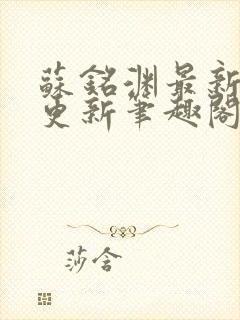 蘇銘淵最新
更新筆趣閣
莎含